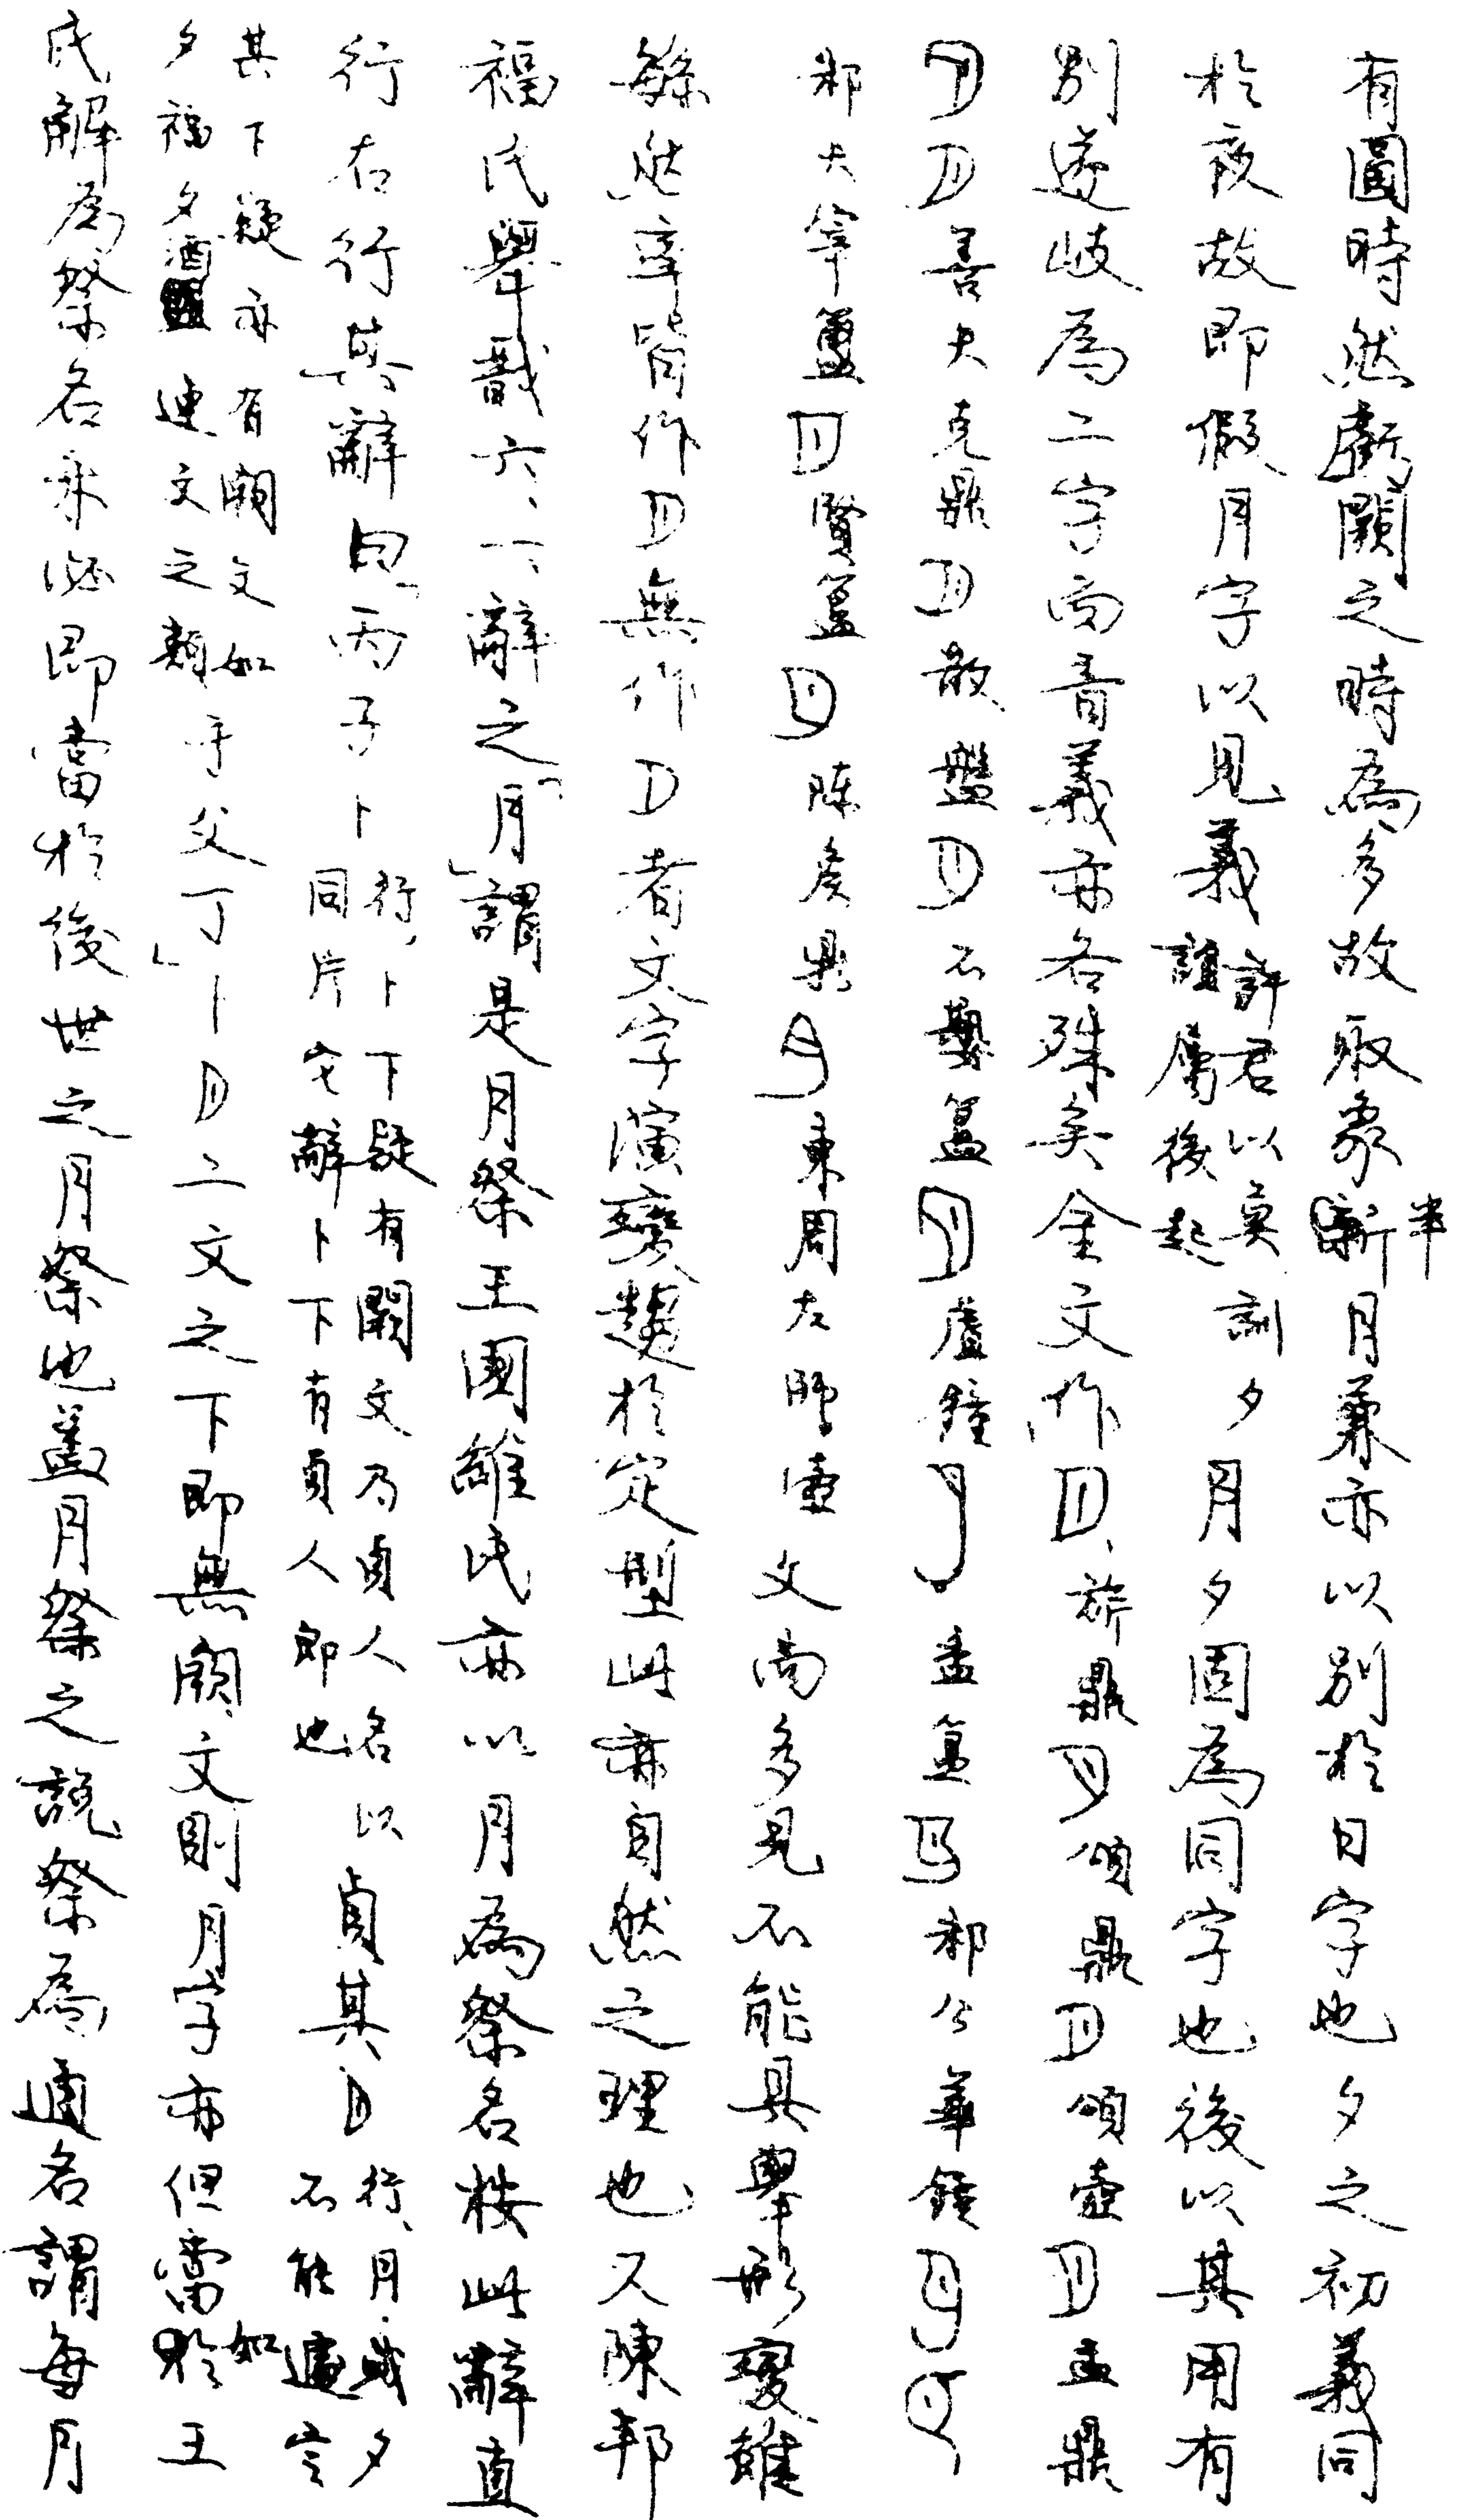 有圓時然虧闕之時為多故取象半月兼亦以別於日字也夕之初義同
於夜故即假月字以見義許君以莫訓夕誼屬後起月夕固為同字也後以其用有
別遂歧為二字而音義亦各殊矣金文作旂鼎頌鼎頌壺盂鼎
善夫克鼎散盤不𡢁簋虘鐘盂簋邾公華鐘
邾大宰簠賢簋陳矦鼎東周左師壺文尚多見不能具舉形變雖
緐然率皆作無作者文字演變趨於定型此亦自然之理也又陳邦
福氏舉戩六、一、辭之「月」謂是月祭王國維氏亦以月為祭名按此辭直
行右行其辭曰「丙子卜行、卜下疑有闕文乃貞人名以同片它辭卜下有貞人即也貞其行、月、或夕不能遽定
其下疑亦有闕文如夕福夕酒連文之類于父丁」卜二文之下即無闕文則月字亦但當如王
氏解為祭名未必即當於後世之月祭也蓋月祭之說祭為通名謂每月